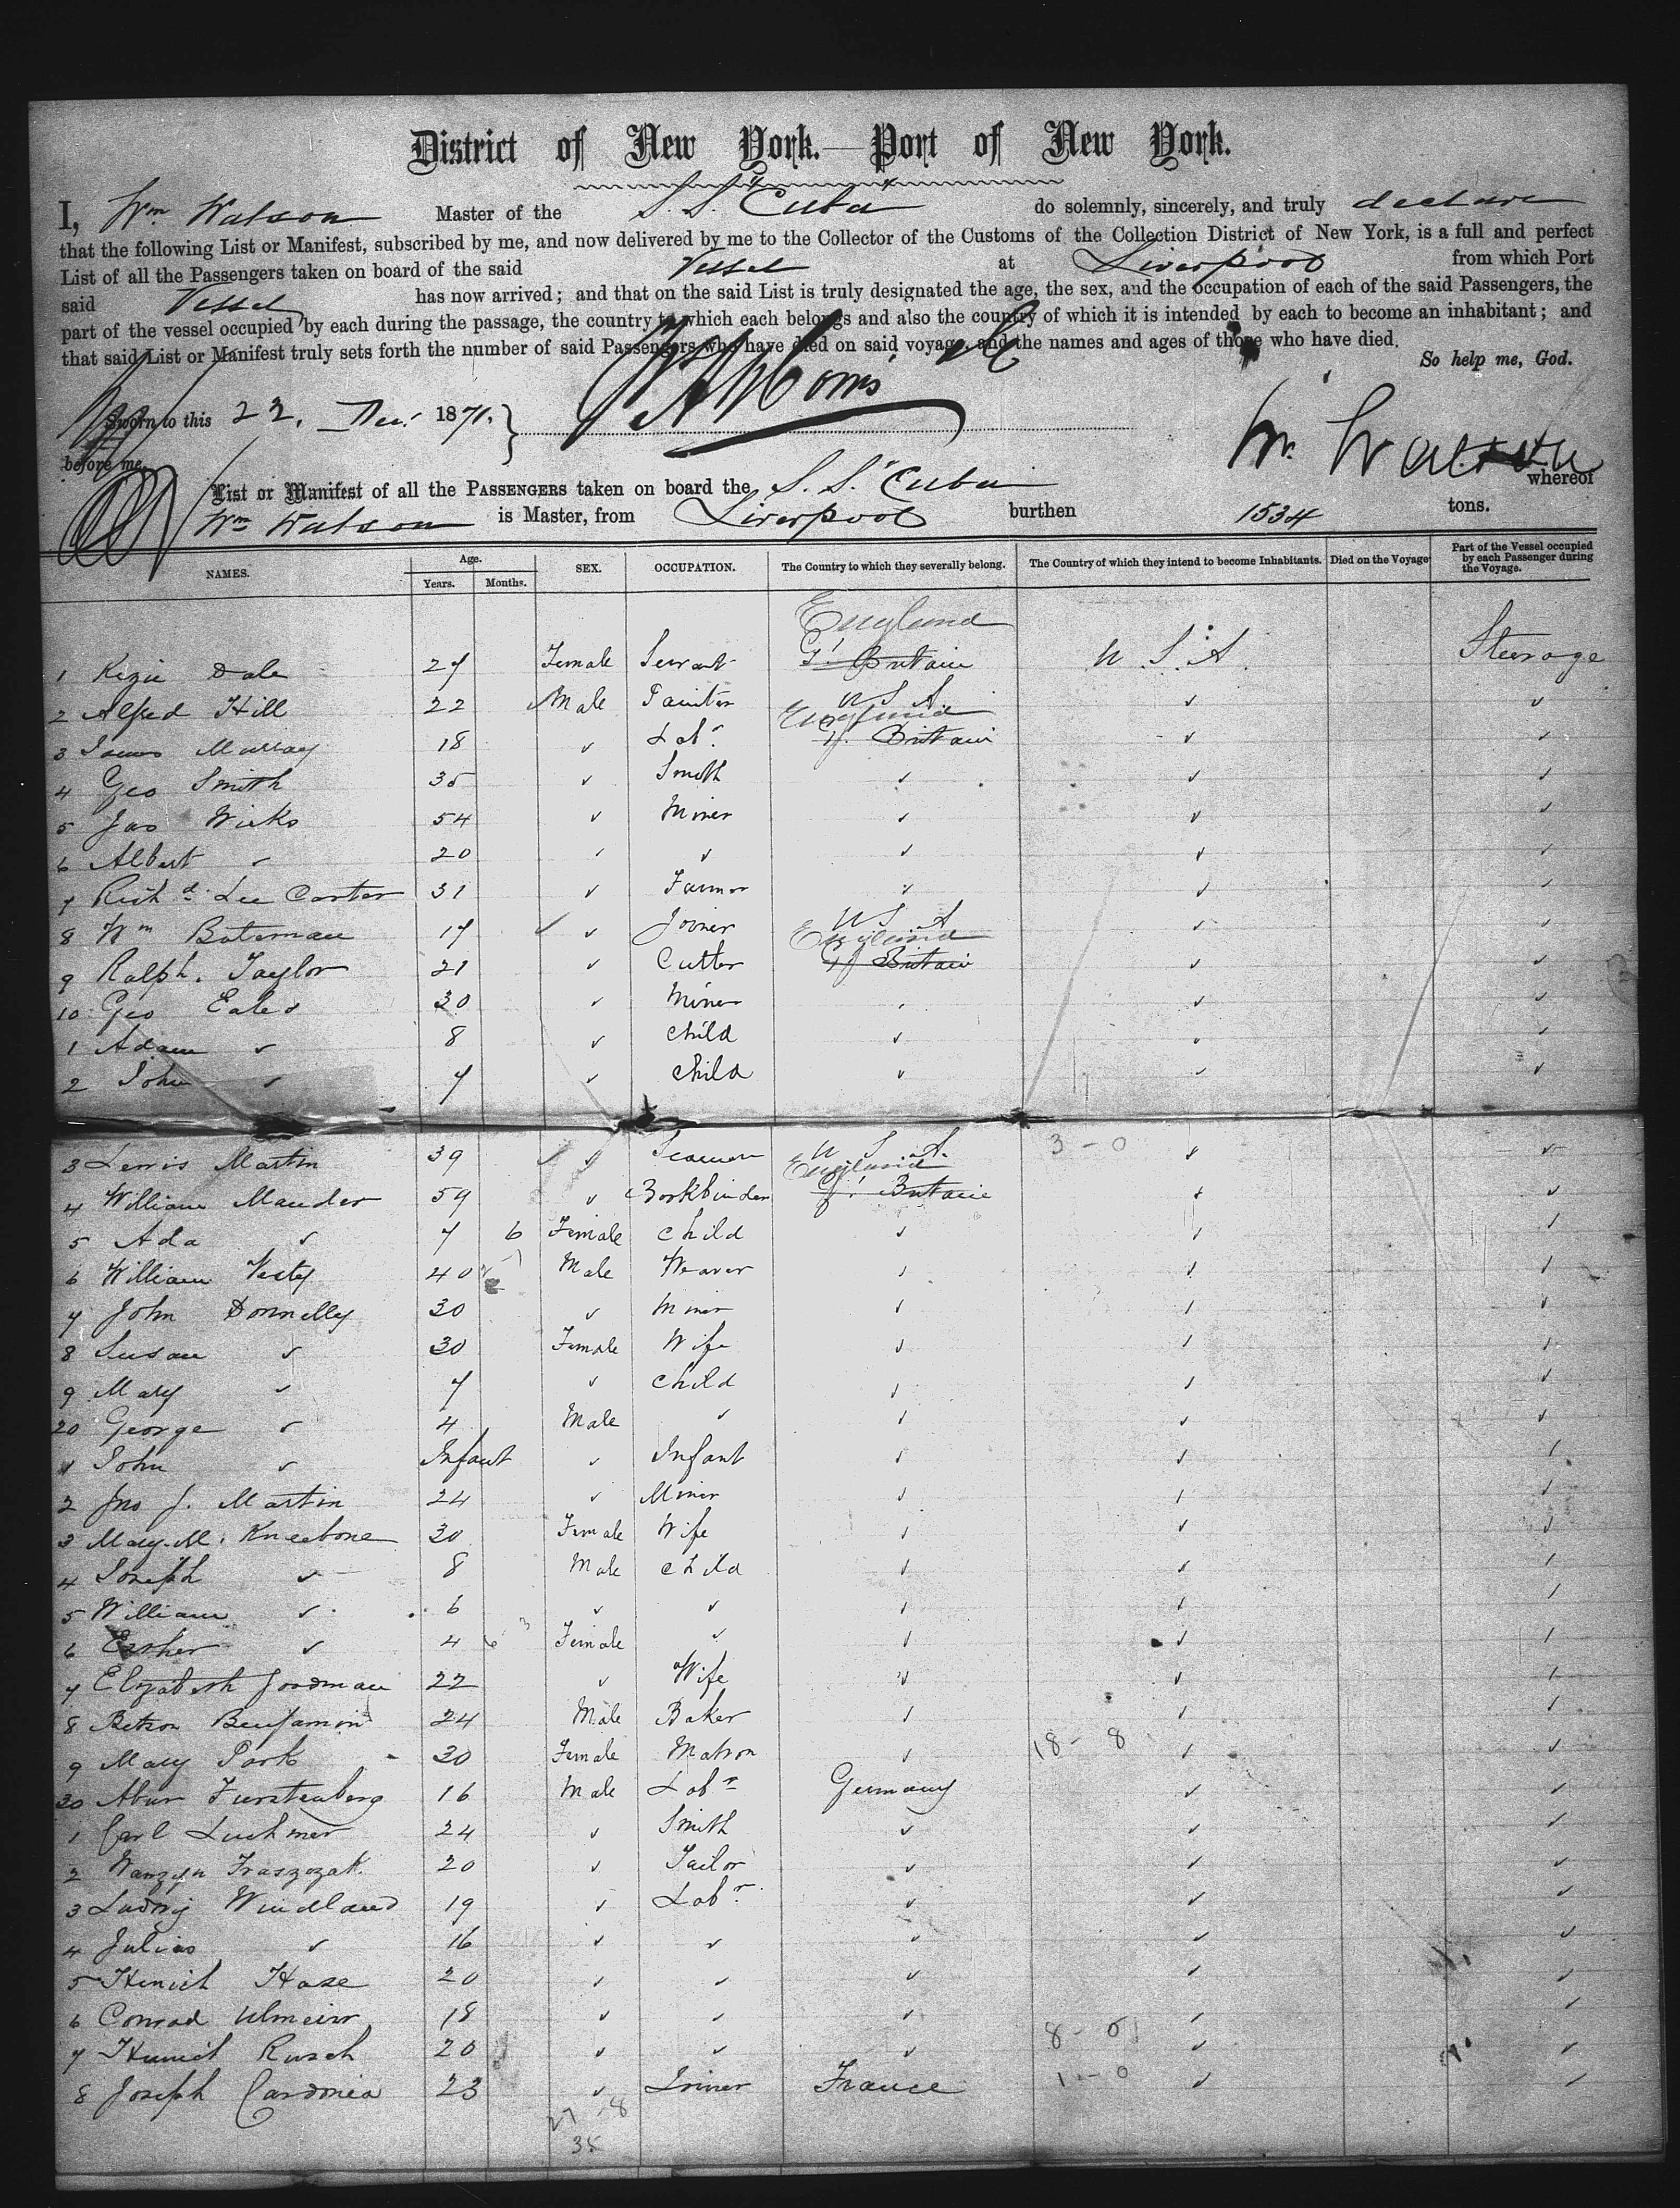 District of New York.—Port of New York.
I, Wm Watson Master of the S.S. "Cuba" do solemnly, sincerely, and truly declare
that the following List or Manifest, subscribed by me, and now delivered by me to the Collector of the Customs of the Collection District of New York, is a full and perfect
List of all the Passengers taken on board of the said Vessel at Liverpool from which Port
said Vessel has now arrived; and that on the said List is truly designated the age, the sex, and the occupation of each of the said Passengers, the
part of the vessel occupied by each during the passage, the country to which each belongs and also the country of which it is intended by each to become an inhabitant; and
that said List or Manifest truly sets forth the number of said Passengers who have died on said voyage, and the names and ages of those who have died.
So help me, God.
Sworn to this 22. Dec. 1871.
before me,
Wm. Watson
List or Manifest of all the PASSENGERS taken on board the S.S. "Cuba whereof
Wm Watson is Master, from Liverpool burthen 1534 tons.
NAMES. Age. Years. Months. SEX. OCCUPATION. The Country to which they severally belong. The Country of which they intend to become Inhabitants. Died on the Voyage Part of the Vessel occupied by each Passenger during the Voyage.
England
1 Kezie Dale 27 Female Servant Gt Britain U.S.A. Steerage
2 Alfred Hill 22 Male Painter U S A. ✓ ✓
England
3 James Murray 18 ✓ Labr. Gt. Britain ✓ ✓
4 Geo Smith 35 ✓ Smith ✓ ✓ ✓
5 Jas Wicks 54 ✓ Miner ✓ ✓ ✓
6 Albert ✓ 20 ✓ ✓ ✓ ✓ ✓
7 Richd. Lee Carter 31 ✓ Farmer ✓ ✓ ✓
8 Wm Bateman 17 ✓ Joiner U S A ✓ ✓
England
9 Ralph. Taylor 21 ✓ Cutter Gt Britain ✓ ✓
10 Geo Eales 30 ✓ Miner ✓ ✓ ✓
1 Adam ✓ 8 ✓ Child ✓ ✓ ✓
2 John ✓ 7 ✓ Child ✓ ✓ ✓
3 Lewis Martin 39 ✓ Seaman U S A. 3 - 0 ✓ ✓
England
4 William Mander 59 ✓ Bookbinder Gt Britain ✓ ✓
5 Ada ✓ 7 6 Female Child ✓ ✓ ✓
6 William Vesty 40 Male Weaver ✓ ✓ ✓
7 John Donnelly 30 ✓ Miner ✓ ✓ ✓
8 Susan ✓ 30 Female Wife ✓ ✓ ✓
9 Mary ✓ 7 ✓ Child ✓ ✓ ✓
20 George ✓ 4 Male ✓ ✓ ✓ ✓
1 John ✓ Infant ✓ Infant ✓ ✓ ✓
2 Jno J. Martin 24 ✓ Miner ✓ ✓ ✓
3 Mary. M. Kneebone 30 Female Wife ✓ ✓ ✓
4 Joseph ✓ 8 Male Child ✓ ✓ ✓
5 William ✓ 6 ✓ ✓ ✓ ✓ ✓
6 Esther ✓ 4 Female ✓ ✓ ✓ ✓
7 Elizabeth Goodman 22 ✓ Wife ✓ ✓ ✓
8 Betson Benjamin 24 Male Baker ✓ ✓ ✓
9 Mary Park 30 Female Matron ✓ 18 - 8 ✓ ✓
30 Abur Furstenberg 16 Male Labr Germany ✓ ✓
1 Carl Luchmer 24 ✓ Smith ✓ ✓ ✓
2 Fraszozak 20 ✓ Tailor ✓ ✓ ✓
3 Ludwig Windland 19 ✓ Labr. ✓ ✓ ✓
4 Julius ✓ 16 ✓ ✓ ✓ ✓ ✓
5 Heinich Hase 20 ✓ ✓ ✓ ✓ ✓
6 Conrad Ulmeier 18 ✓ ✓ ✓ ✓ ✓
7 Heinich Rusch 20 ✓ ✓ ✓ 8 - 0 ✓ ✓
8 Joseph Cardonia 23 ✓ France 1 - 0 ✓ ✓
27 - 8
35